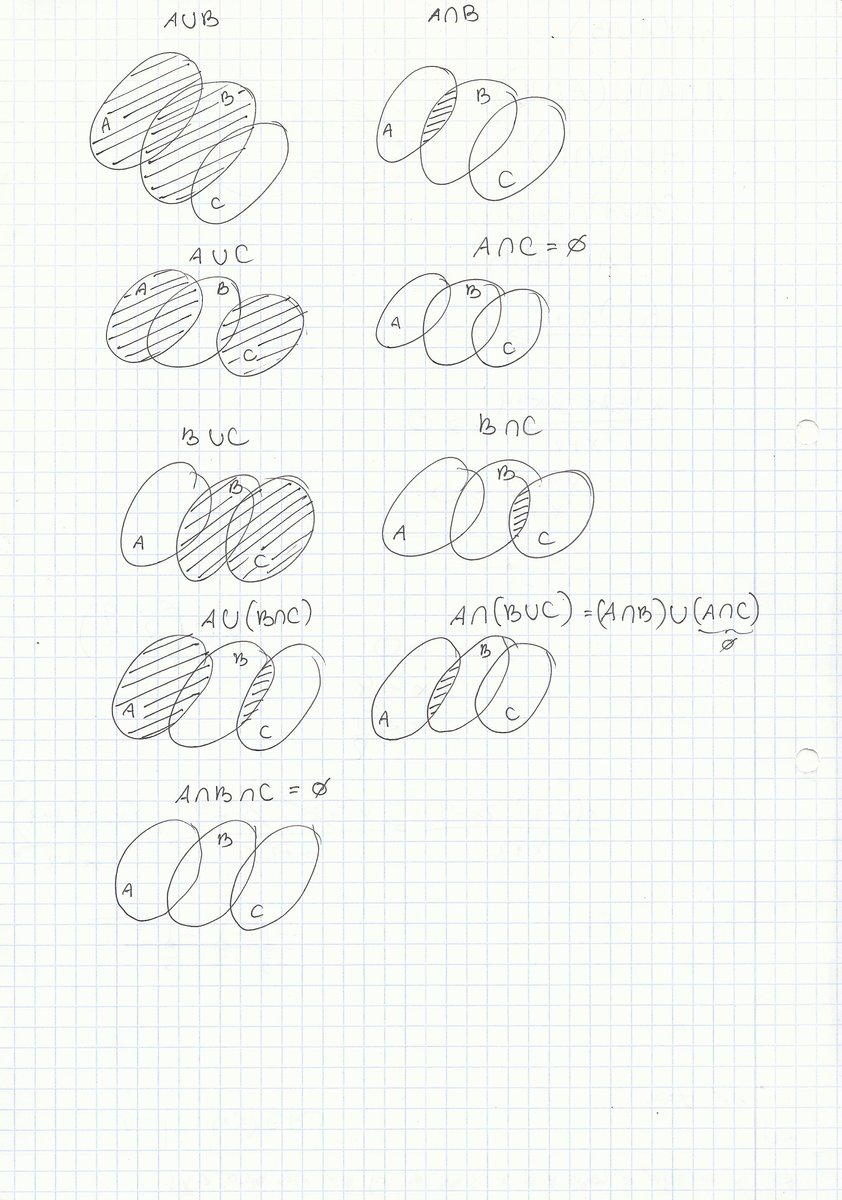 A∪B
A∩B
A
B
C
A
B
C
A∪C
A∩C = ∅
A
B
C
A
B
C
B∪C
B∩C
A
B
C
A
B
C
A∪(B∩C)
A∩(B∪C) = (A∩B)∪(A∩C)
∅
A
B
C
A
B
C
A∩B∩C = ∅
A
B
C